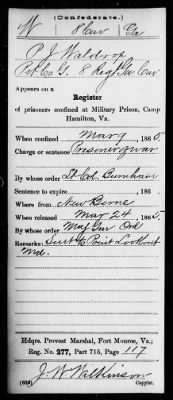 (Confederate.)
W 8 Cav Ga
P. J. Waldrop
Pvt Co. G. 8 Regt Ga Cav
Appears on a
Register
of prisoners confined at Military Prison, Camp
Hamilton, Va.
When confined Mar 9, 1865.
Charge or sentence Prisoner of war
By whose order Lt Col. Burnham
Sentence to expire , 186 .
Where from New Berne
When released Mar 24, 1865.
By whose order Maj Gen Ord
Remarks: Sent to Point Lookout
Md.
Hdqrs. Provost Marshal, Fort Monroe, Va.;
Reg. No. 277, Part 715, Page 117
J. W. Wilkinson
Copyist.